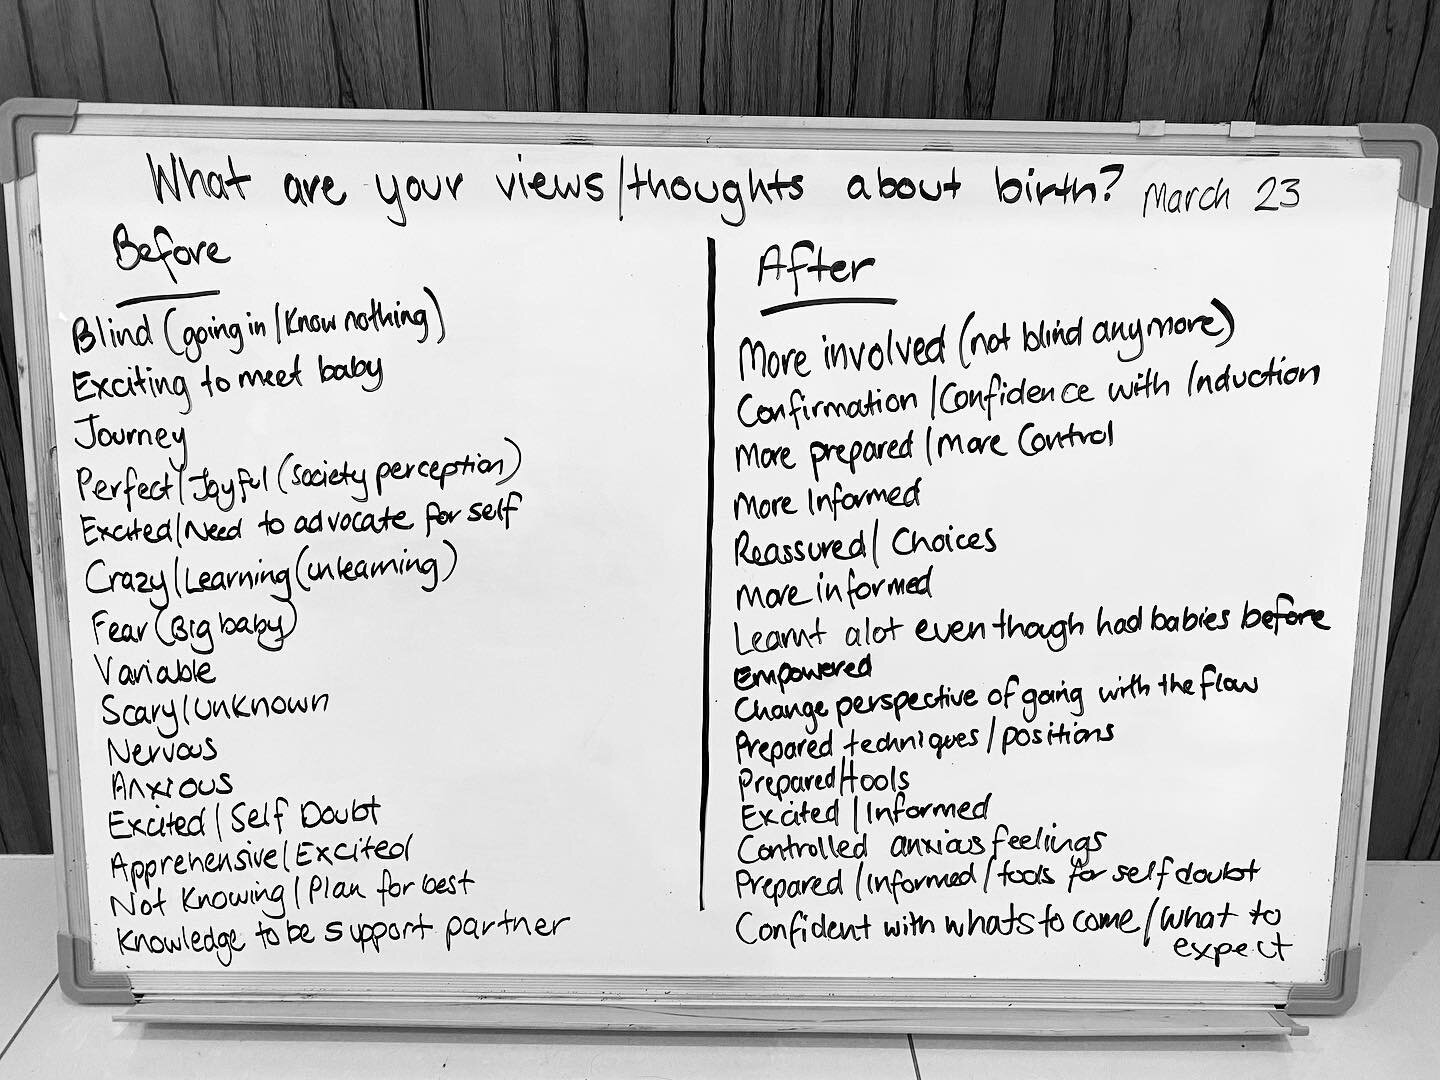 What are your views/thoughts about birth? March 23
Before
Blind (going in/know nothing)
Exciting to meet baby
Journey
Perfect/Joyful (society perception)
Excited/Need to advocate for self
Crazy/Learning (unlearning)
Fear (Big baby)
Variable
Scary/Unknown
Nervous
Anxious
Excited/Self Doubt
Apprehensive/Excited
Not Knowing/Plan for best
Knowledge to be support partner
After
More involved (not blind anymore)
Confirmation/Confidence with Induction
More prepared/More Control
More Informed
Reassured/Choices
More informed
Learnt alot even though had babies before
Empowered
Change perspective of going with the flow
Prepared techniques/positions
Prepared/tools
Excited/Informed
Controlled anxious feelings
Prepared/Informed/tools for self doubt
Confident with whats to come/what to
expect